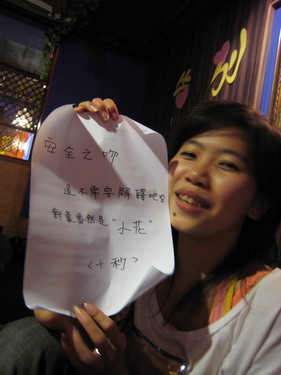 安全之吻
還不需要解釋吧!!
對象當然是"小花"
<十秒>